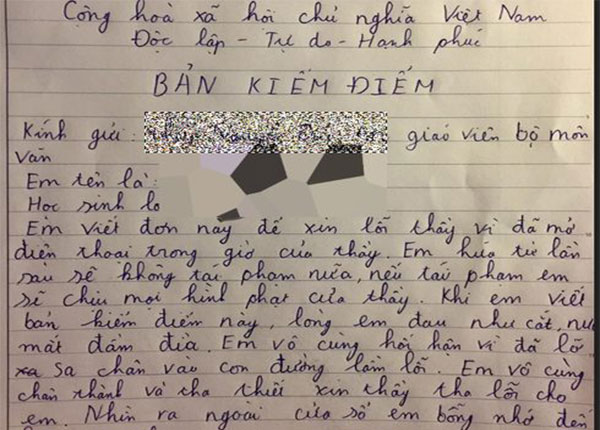 Cộng hoà xã hội chủ nghĩa Việt Nam
Độc lập - Tự do - Hạnh phúc
BẢN KIỂM ĐIỂM
Kính gửi: giáo viên bộ môn
Văn
Em tên là:
Học sinh lớ
Em viết đơn này để xin lỗi thầy vì đã mở
điện thoại trong giờ của thầy. Em hứa từ lần
sau sẽ không tái phạm nữa, nếu tái phạm em
sẽ chịu mọi hình phạt của thầy. Khi em viết
bản kiểm điểm này, lòng em đau như cắt, nư
mắt đầm đìa. Em vô cùng hối hận vì đã lỡ
xa sa chân vào con đường lầm lỗi. Em vô cùng
chân thành và tha thiết xin thầy tha lỗi cho
em. Nhìn ra ngoài cửa sổ em bỗng nhớ đến